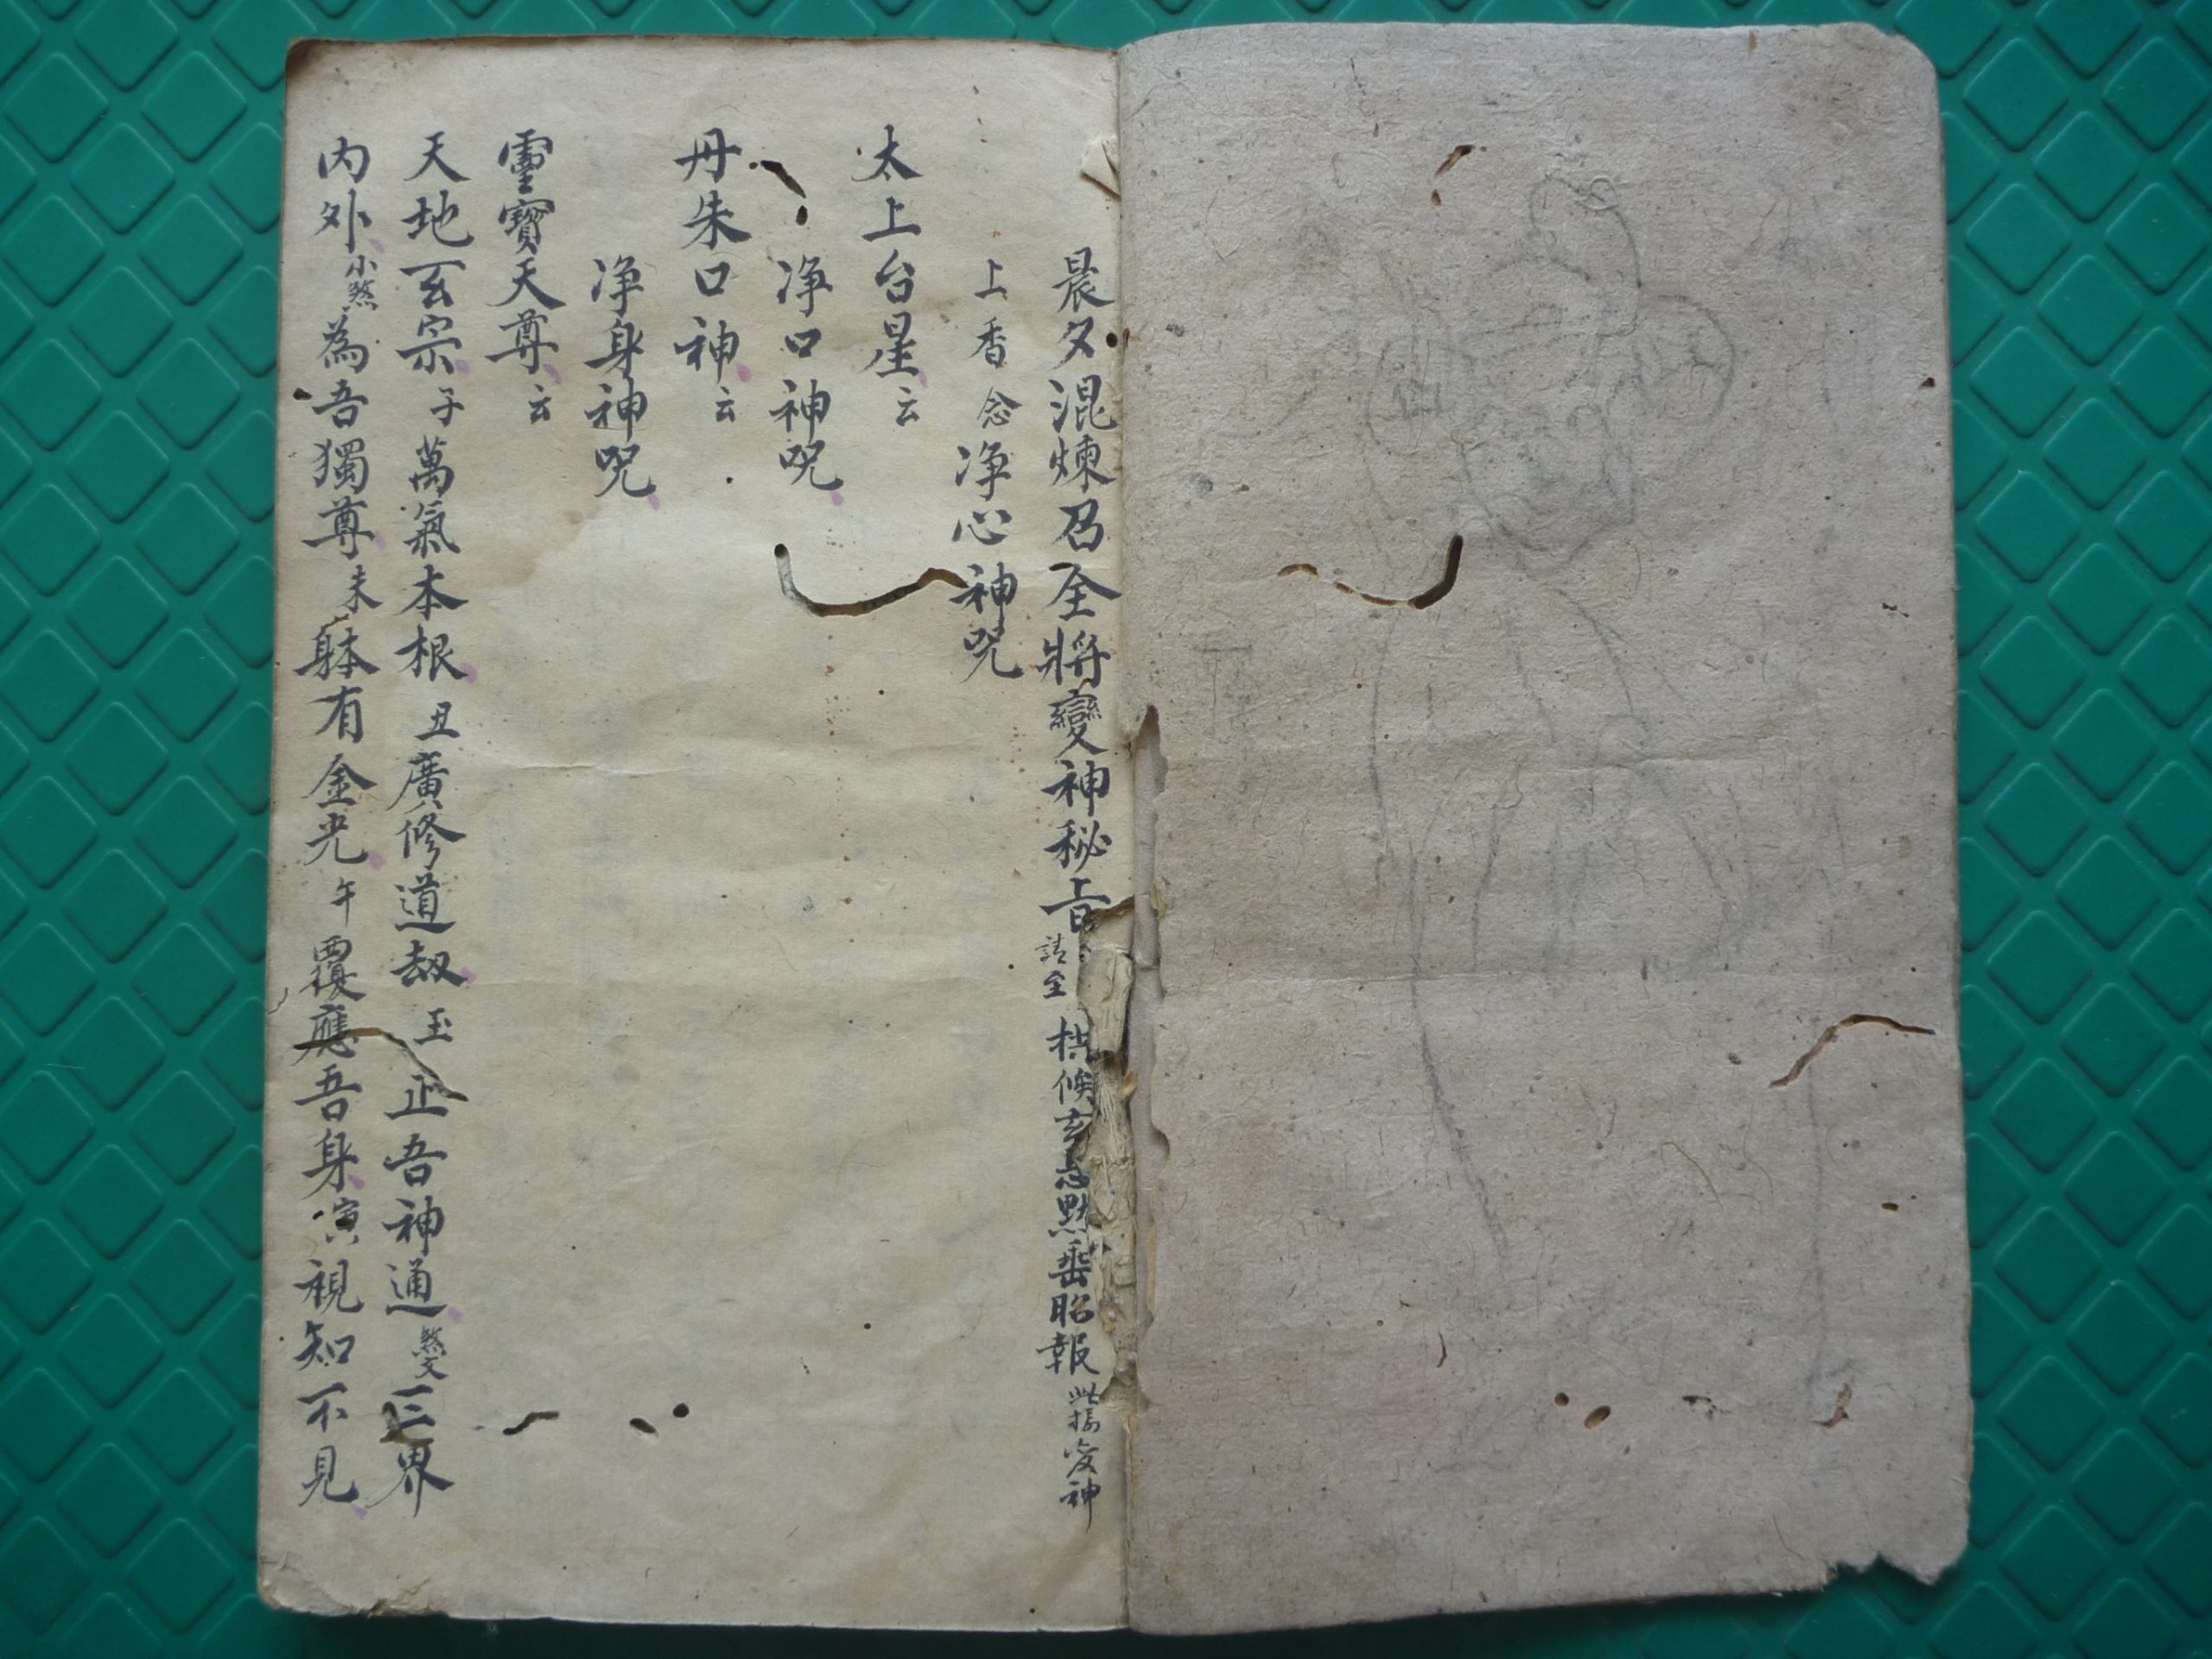 晨夕混煉召全將變神秘旨 請 全 拱候玄 默垂昭報 此 变神
上香 念淨心神咒
太上台星 云
淨口神咒
丹朱口神 云
淨身神咒
靈寶天尊 云
天地玄宗 子 萬氣本根 丑 廣修道劫 玉 正吾神通 煞文 三界
內外 小煞 為吾獨尊 未 躰有金光 午 覆應吾身 寅 視知不見